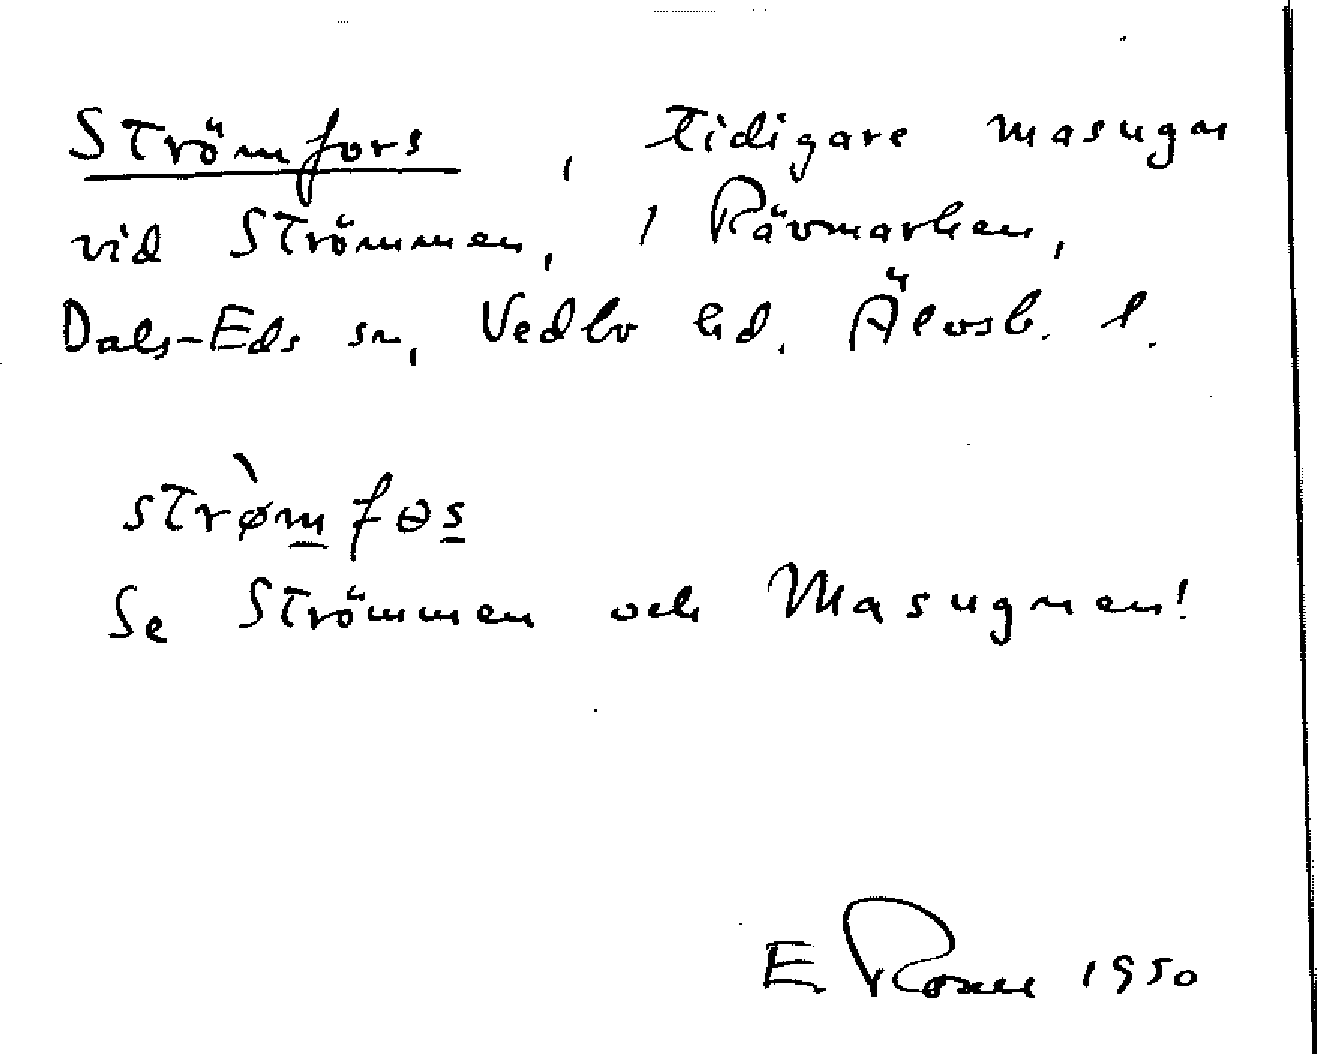 Strömfors, tidigare masugn
vid Strömmen, 1 Rävmarken,
Dals-Eds sn, Vedbo hd. Älvsb. l.
strø̀m̲fɵs̲
Se Strömmen och Masugnen!
E 1950